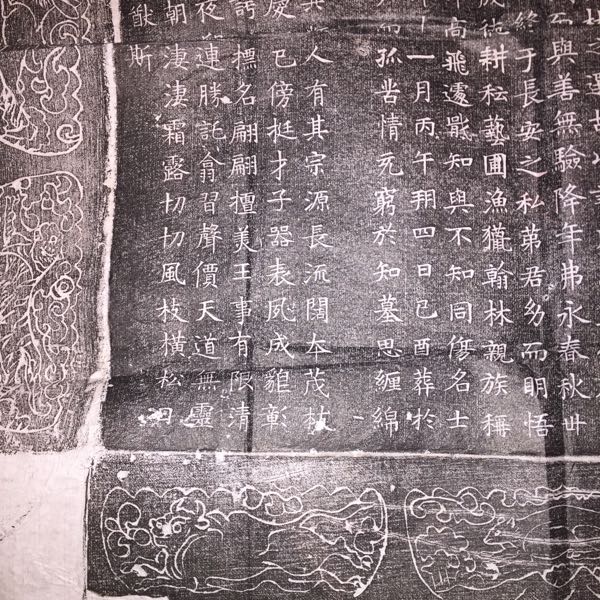 與善無驗降年弗永春秋卅
終于長安之私第君幼而明悟
耕耘藝圃漁獵翰林親族稱
高飛遽戢知與不知同傷名士
一月丙午朔四日己酉葬於
孤苦情無窮於知墓思纏綿
人有其宗源長流闊本茂枝
慶已傍挺才子器表夙成雅彰
標名翩翩擅美王事有限清
夜連勝託翕習聲價天道無靈
朝淒淒霜露切切風枝橫松
猷斯